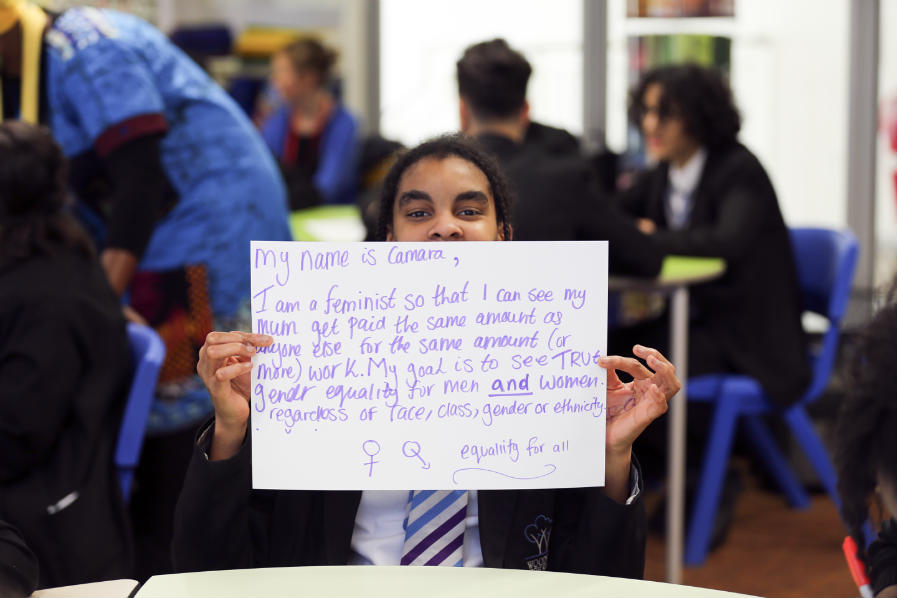 My name is Camara,
I am a feminist so that I can see my
mum get paid the same amount as
anyone else for the same amount (or
more) work. My goal is to see TRUE
gender equality for men and women.
regardless of race, class, gender or ethnicity
equality for all